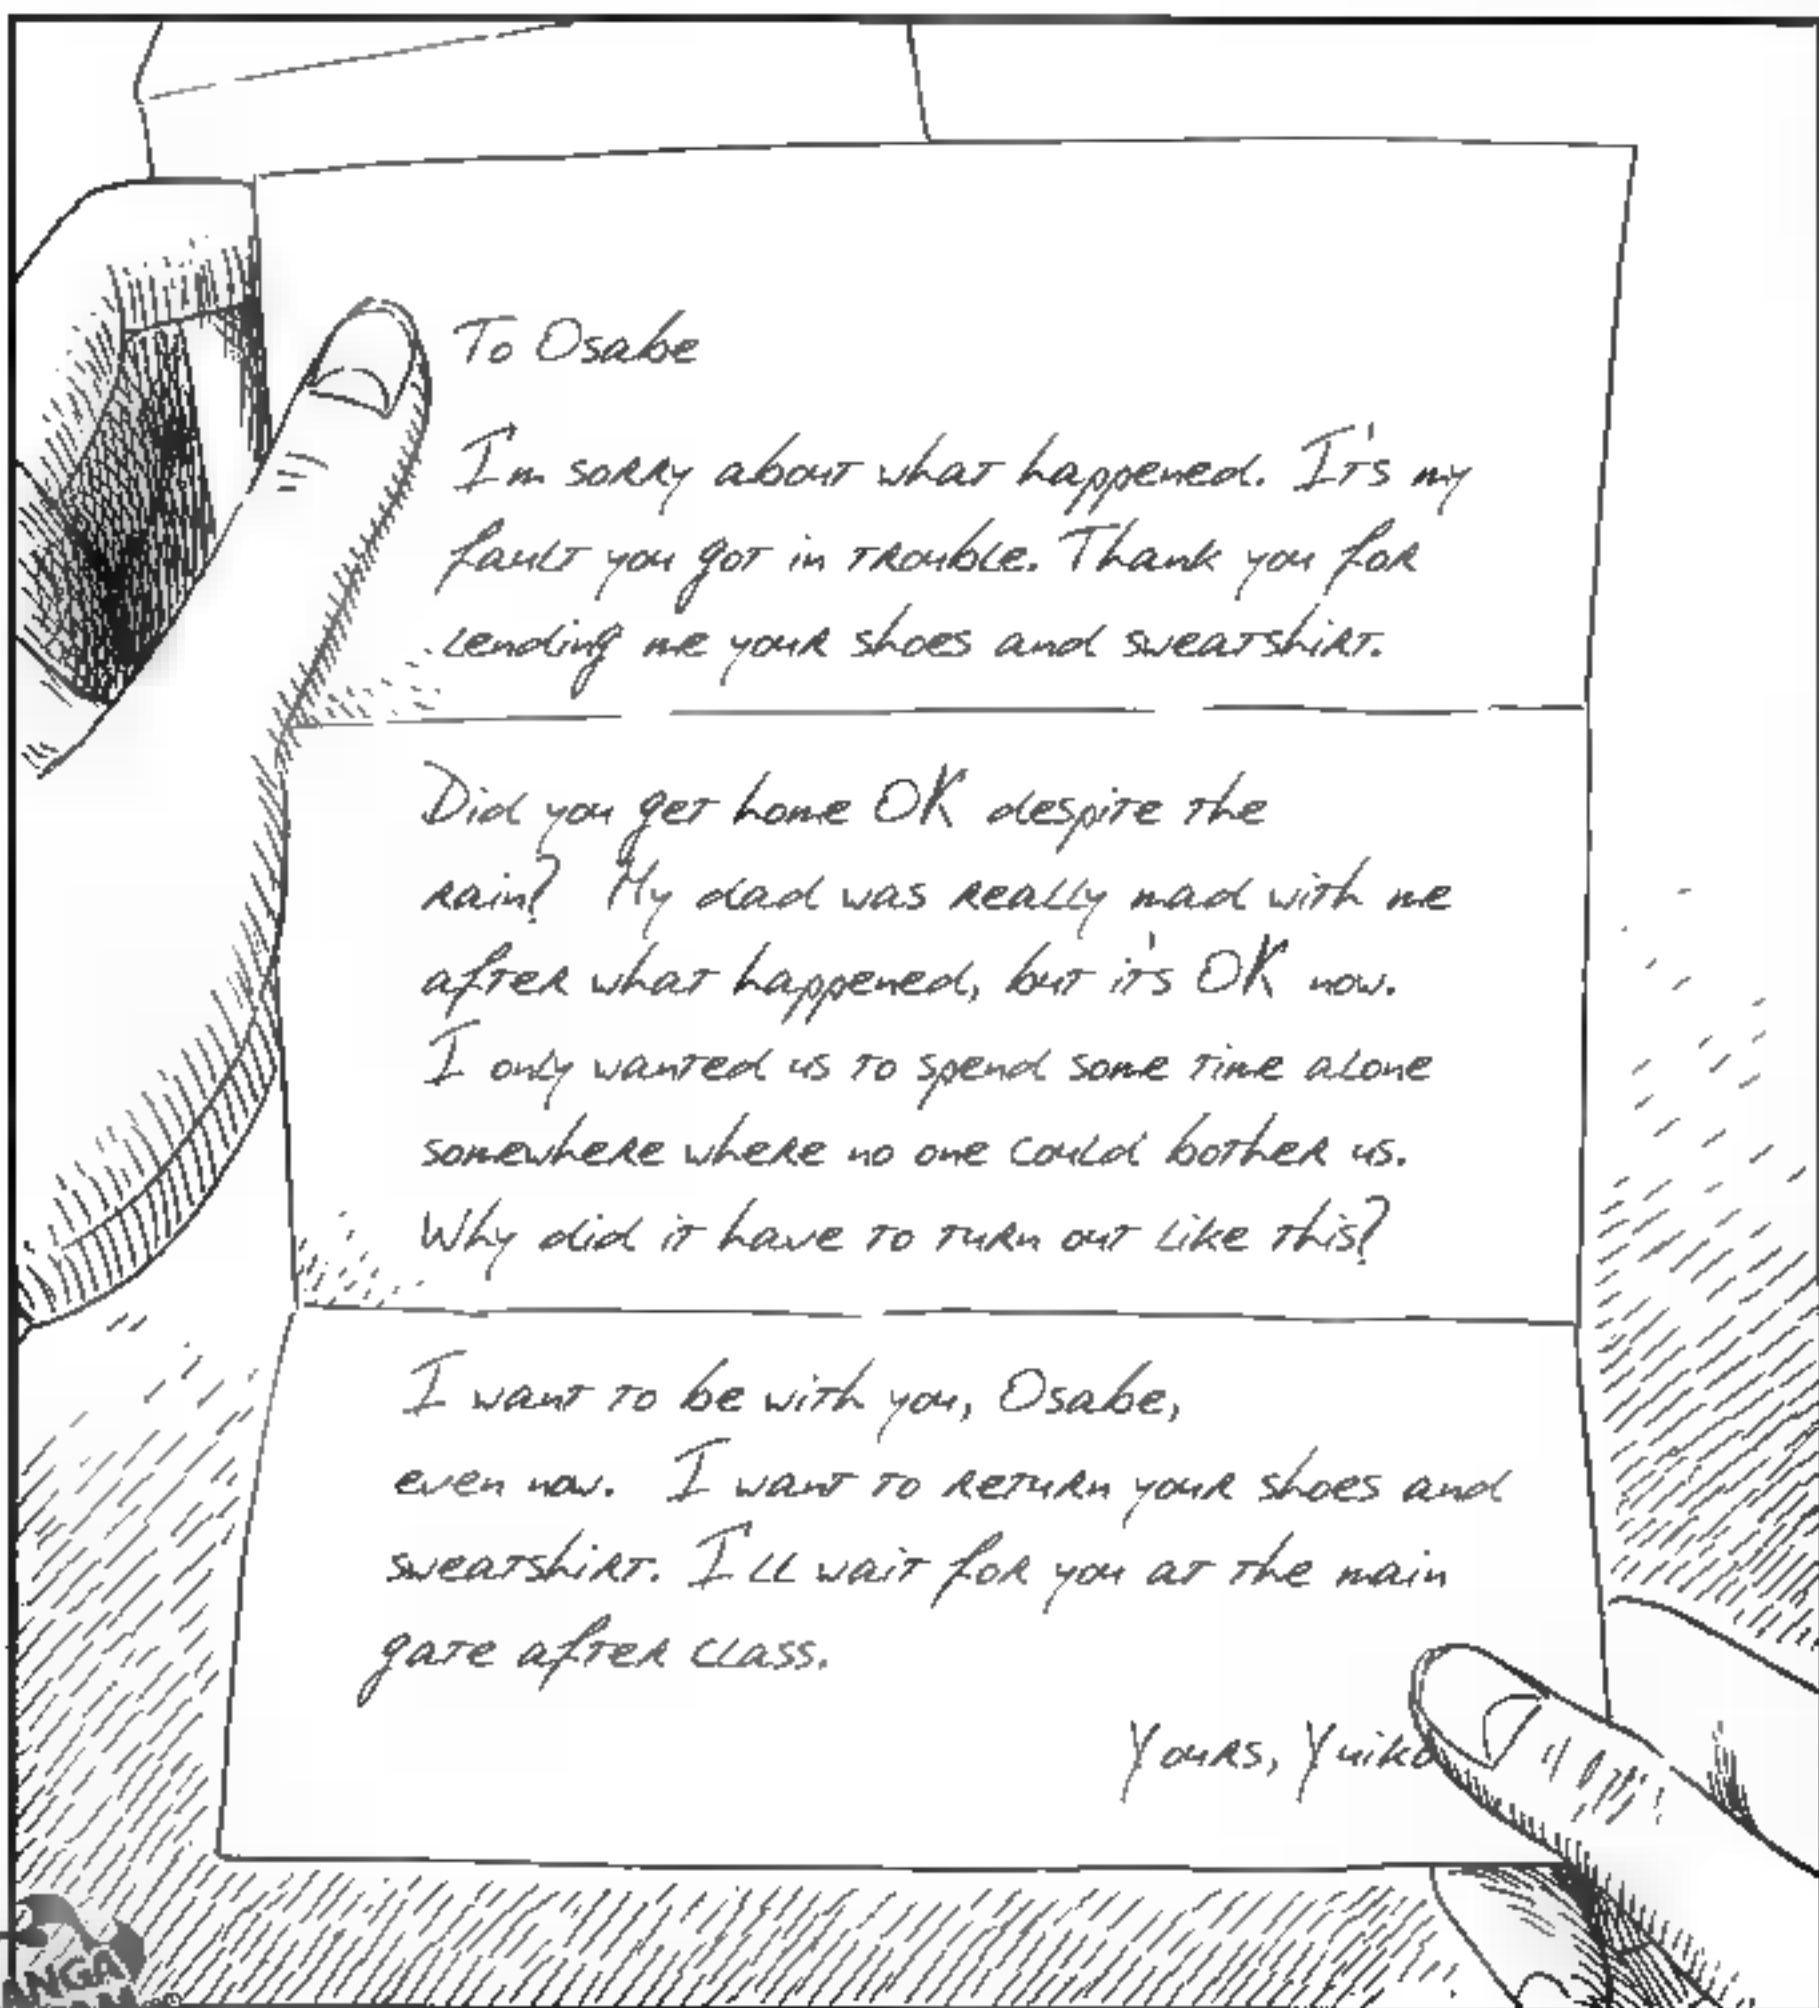 To Osabe
I'm sorry about what happened. It's my
fault you got in trouble. Thank you for
lending me your shoes and sweatshirt.
Did you get home OK despite the
rain? My dad was really mad with me
after what happened, but it's OK now.
I only wanted us to spend some time alone
somewhere where no one could bother us.
Why did it have to turn out like this?
I want to be with you, Osabe,
even now. I want to return your shoes and
sweatshirt. I'll wait for you at the main
gate after class.
Yours, Yuiko